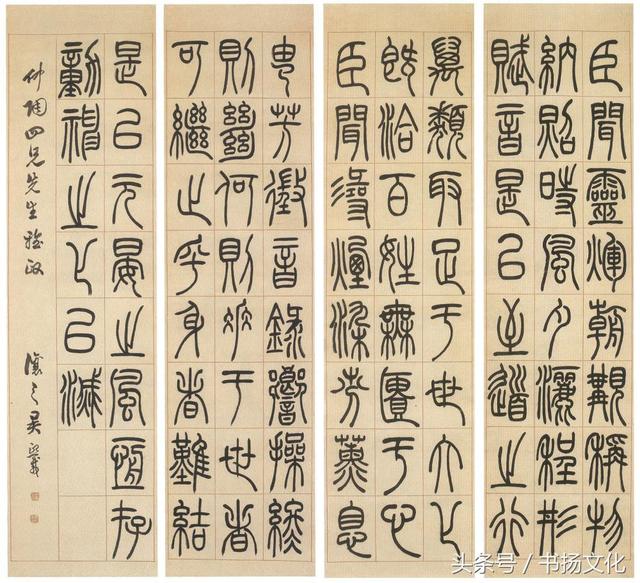 臣聞靈輝朝覯稱物
納照時風夕灑程形
賦音是以至道之行
萬類取足于世大化
既洽百姓無匱于心
臣聞尋煙染芬薰息
猶芳徵音錄響操終
則絕何則垂于世者
可繼止乎身者難結
是以元晏之風恆存
動神之化已滅
仲陶四兄先生雅政
讓之吳熙載
头条号／书扬文化